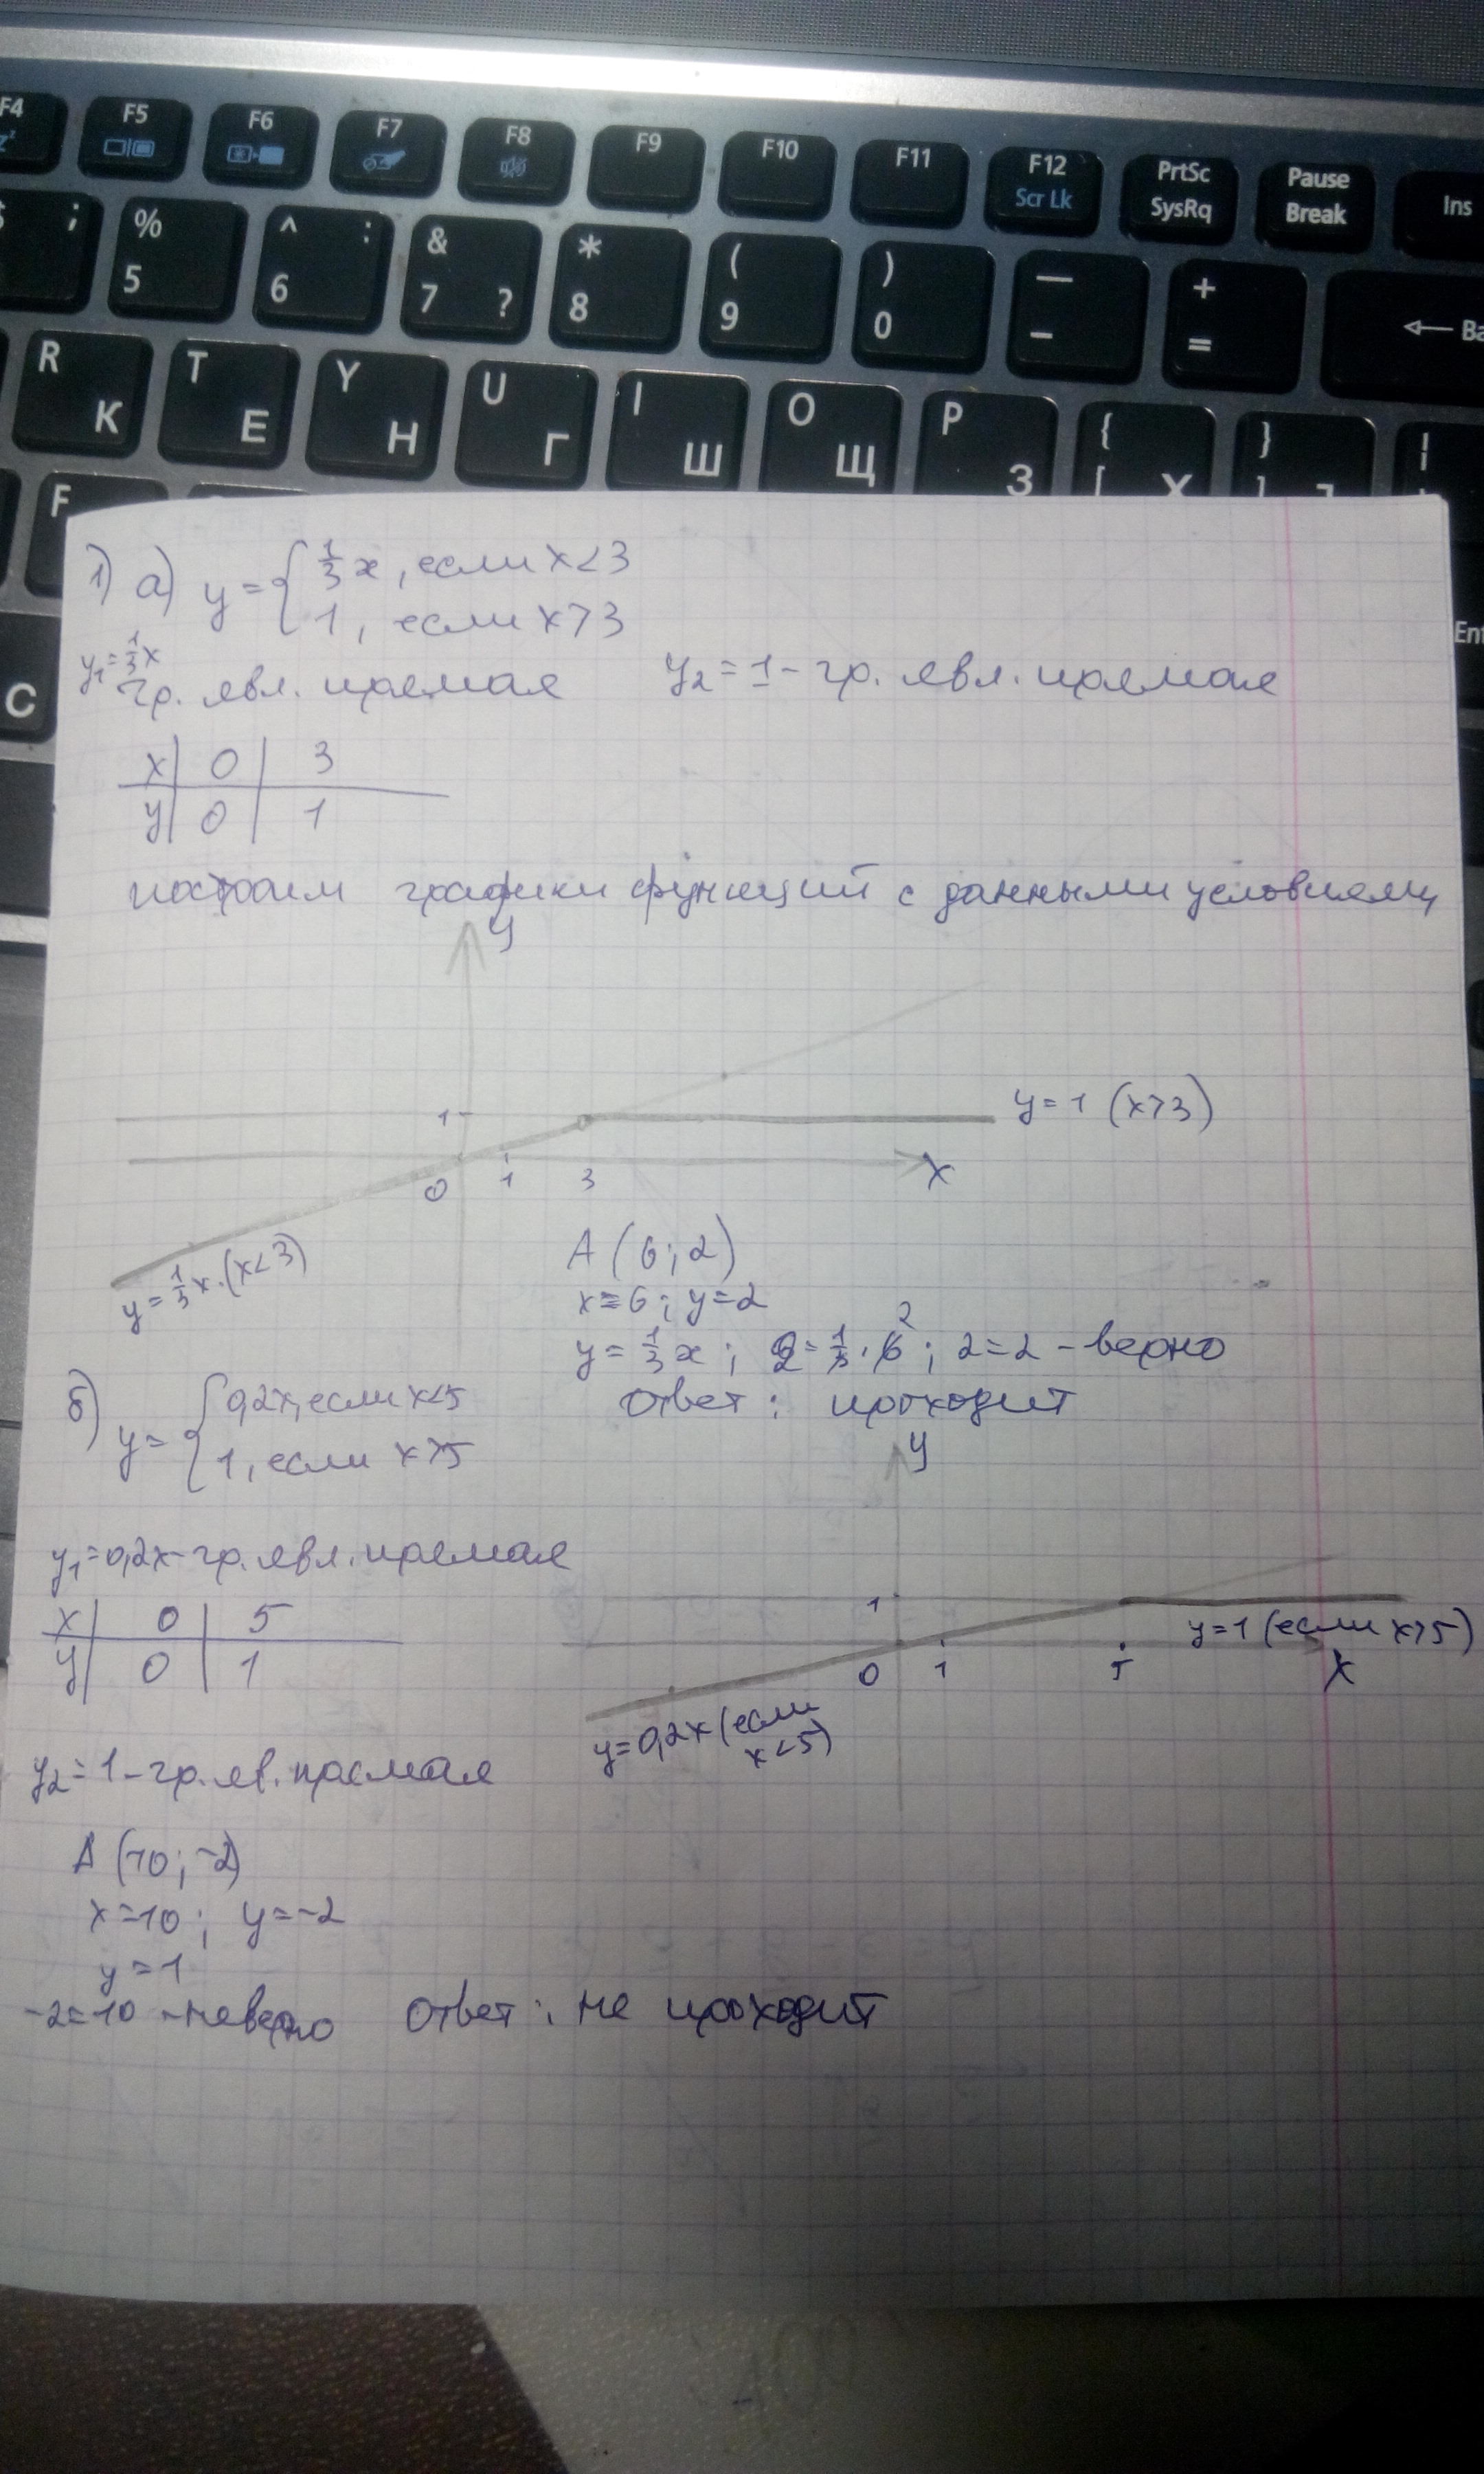 F4 F5 F6 F7 F8 F9 F10 F11 F12 PrtSc Pause Ins
Scr Lk SysRq Break
; % ^ : & * ( ) — +
5 6 7 ? 8 9 0 - = Ba
R T Y U I O P { } |
К Е Н Г Ш Щ З [ Х ]
F
C
En
1) а) y = { 1/3 x, если x<3
1, если x>3
y₁ = 1/3 x
гр. явл. прямая y₂ = 1 - гр. явл. прямая
x | 0 | 3
y | 0 | 1
построим графики функций с данными условиями
y
1 y=1 (x>3)
0 1 3 x
y = 1/3 x. (x<3)
A (6; 2)
x=6; y=2
y = 1/3 x; 2 = 1/3 · 6 2; 2=2 - верно
Ответ: проходит
б) y = { 0,2x, если x<5
1, если x>5
y
y₁=0,2x - гр. явл. прямая
x | 0 | 5
y | 0 | 1
1 y=1 (если x>5)
0 1 5 x
y=0,2x (если
x<5)
y₂=1 - гр. яв. прямая
A (10; -2)
x=10; y=-2
y=1
-2=10 - неверно Ответ: не проходит